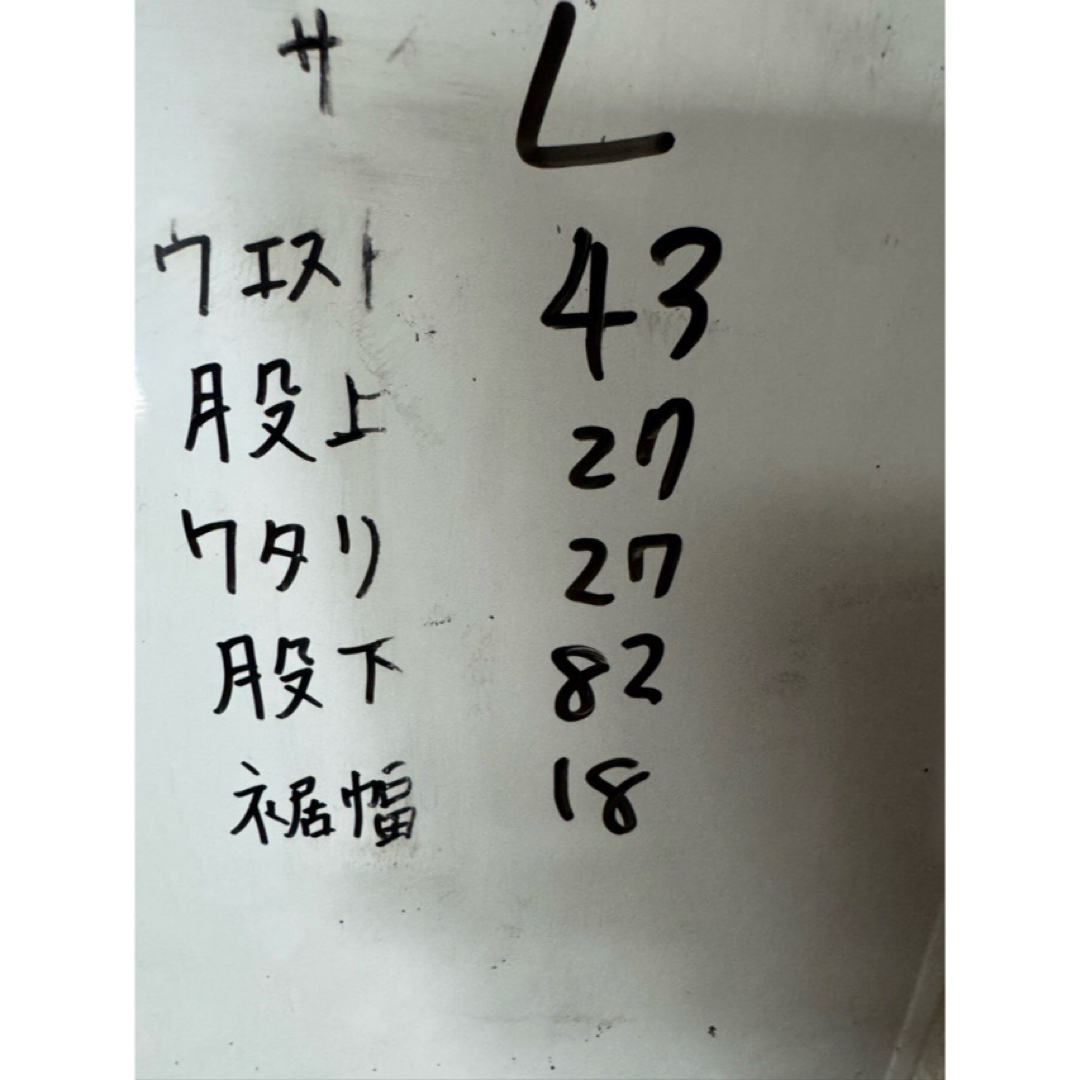 サ L
ウエスト 43
股上 27
ワタリ 27
股下 82
裾幅 18